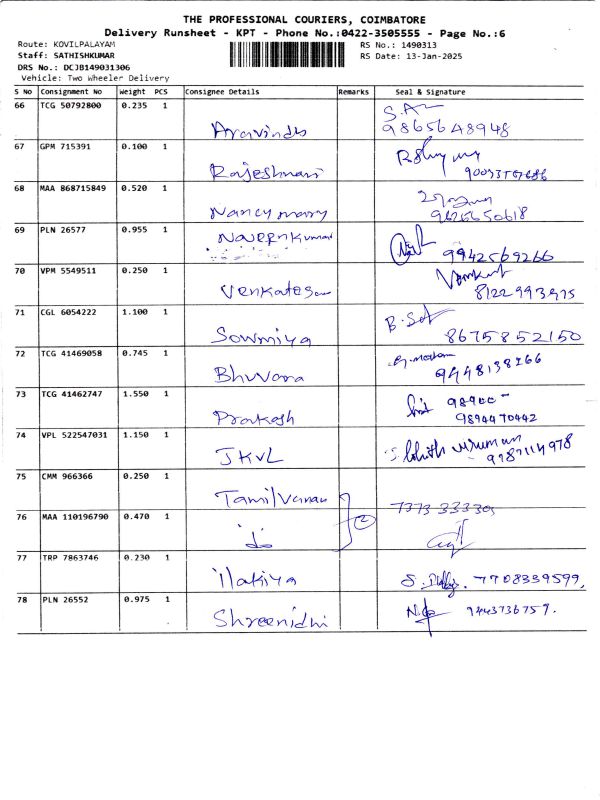 THE PROFESSIONAL COURIERS, COIMBATORE
Delivery Runsheet - KPT - Phone No.:0422-3505555 - Page No.:6
Route: KOVILPALAYAM
RS No.: 1490313
Staff: SATHISHKUMAR
RS Date: 13-Jan-2025
DRS No.: DCJB149031306
Vehicle: Two Wheeler Delivery
S No Consignment No Weight PCS Consignee Details Remarks Seal & Signature
66 TCG 50792800 0.235 1
Aravindh 9865648948
67 GPM 715391 0.100 1
Rajeshwari
68 MAA 868715849 0.520 1
Nancy mary 9626650618
69 PLN 26577 0.955 1
Naveen Kumar 9942569266
70 VPM 5549511 0.250 1
Venkatesan Venkat
8122993575
71 CGL 6054222 1.100 1
Sowmiya 8675852150
72 TCG 41469058 0.745 1
Bhuvana 9448138266
73 TCG 41462747 1.550 1
Prakash 98900
9894470442
74 VPL 522547031 1.150 1
JKVL 9787114978
75 CMM 966366 0.250 1
Tamilvanan 7373 33330
76 MAA 110196790 0.470 1
2
77 TRP 7863746 0.230 1
ilakiya 7708339599
78 PLN 26552 0.975 1
Shreenidhi 9443736757.